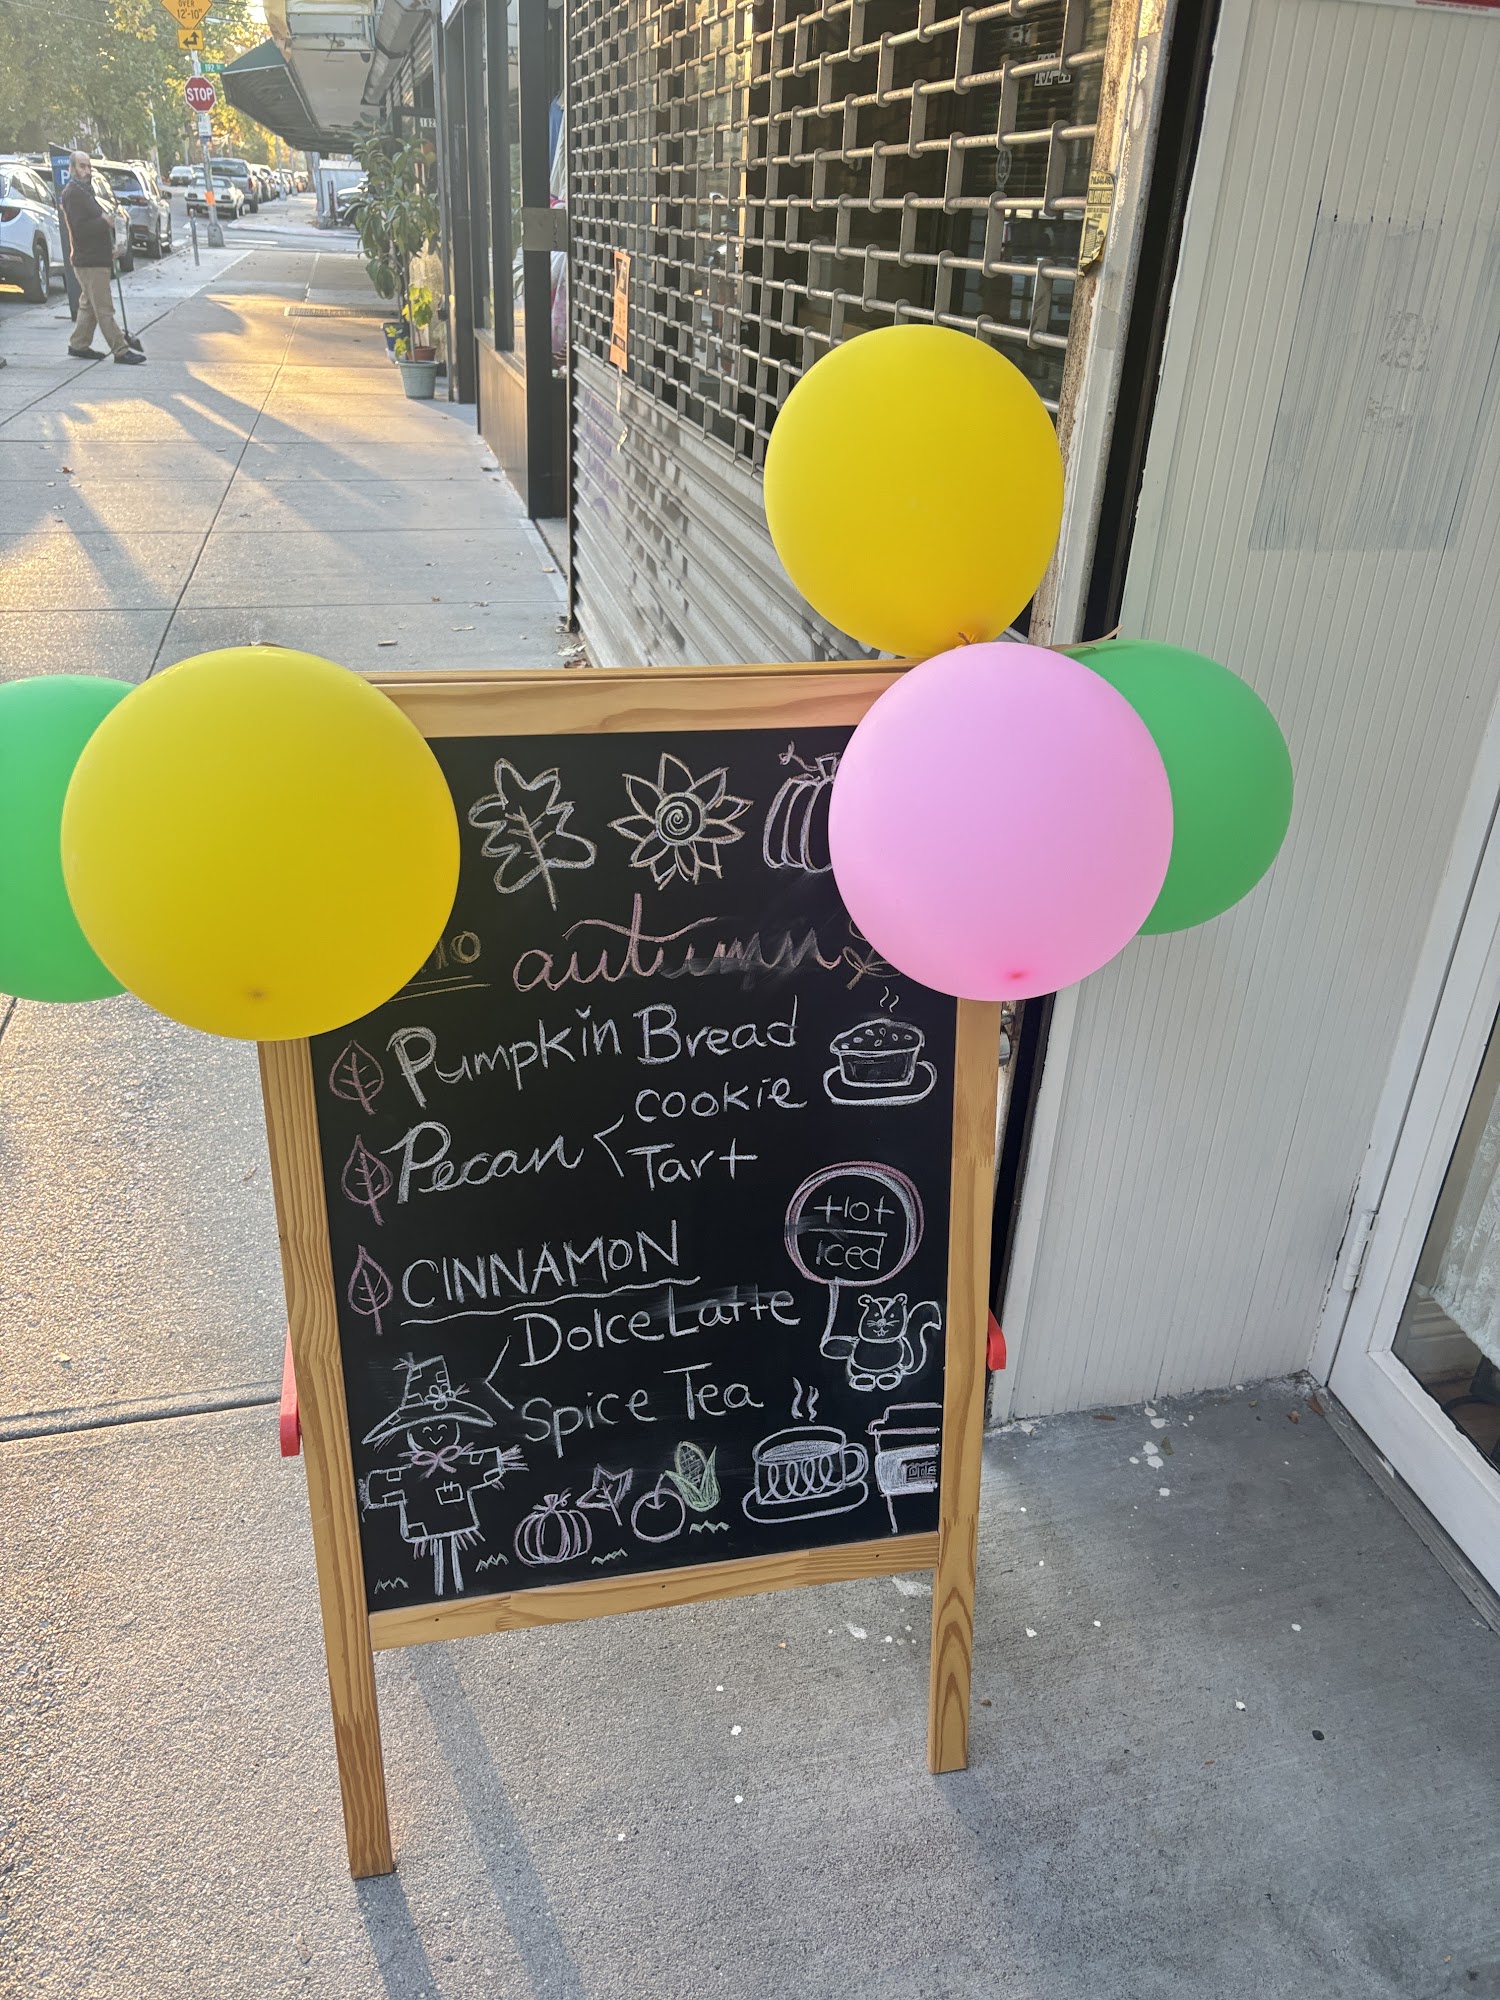 OVER
12'-10"
192 St
STOP
autumn
Pumpkin Bread
Pecan
cookie
Tart
Hot
iced
CINNAMON
Dolce Latte
Spice Tea